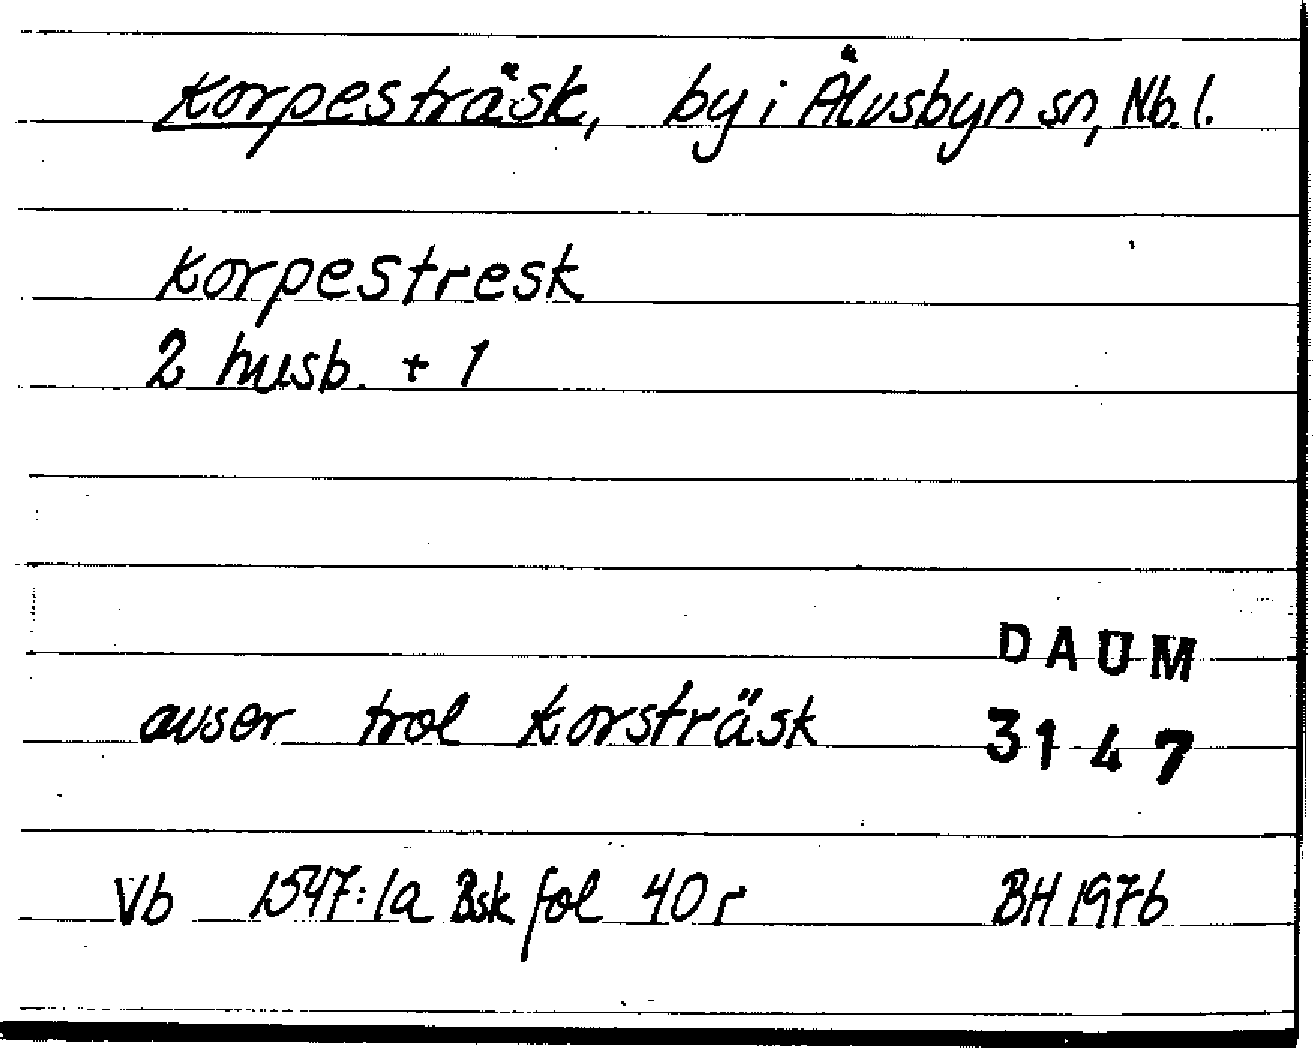 Korpesträsk, by i Älvsbyn sn, Nb. l.
Korpestresk
2 husb. + 1
DAUM
avser trol Korsträsk
3147
Vb 1547:1a Bsk fol 40 r BH 1976